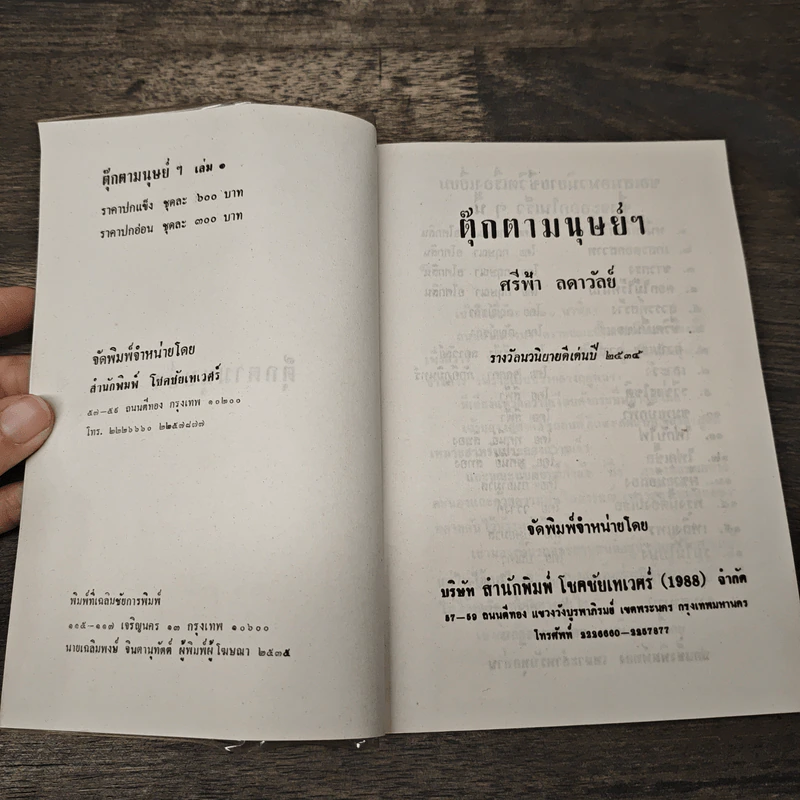 ตุ๊กตามนุษย์ ๆ เล่ม ๑
ราคาปกแข็ง ชุดละ ๖๐๐ บาท
ราคาปกอ่อน ชุดละ ๓๐๐ บาท
จัดพิมพ์จำหน่ายโดย
สำนักพิมพ์ โชคชัยเทเวศร์
๕๗–๕๙ ถนนตีทอง กรุงเทพ ๑๐๒๐๐
โทร. ๒๒๒๖๖๖๐ ๒๒๕๗๘๗๗
พิมพ์ที่เฉลิมชัยการพิมพ์
๑๑๕–๑๑๗ เจริญนคร ๑๓ กรุงเทพ ๑๐๖๐๐
นายเฉลิมพงษ์ จินตานุทัตต์ ผู้พิมพ์ผู้โฆษณา ๒๕๓๕
ตุ๊กตามนุษย์ๆ
ศรีฟ้า ลดาวัลย์
รางวัลนวนิยายดีเด่นปี ๒๕๓๔
จัดพิมพ์จำหน่ายโดย
บริษัท สำนักพิมพ์ โชคชัยเทเวศร์ (1988) จำกัด
57–59 ถนนตีทอง แขวงวังบูรพาภิรมย์ เขตพระนคร กรุงเทพมหานคร
โทรศัพท์ 2226660–2257877